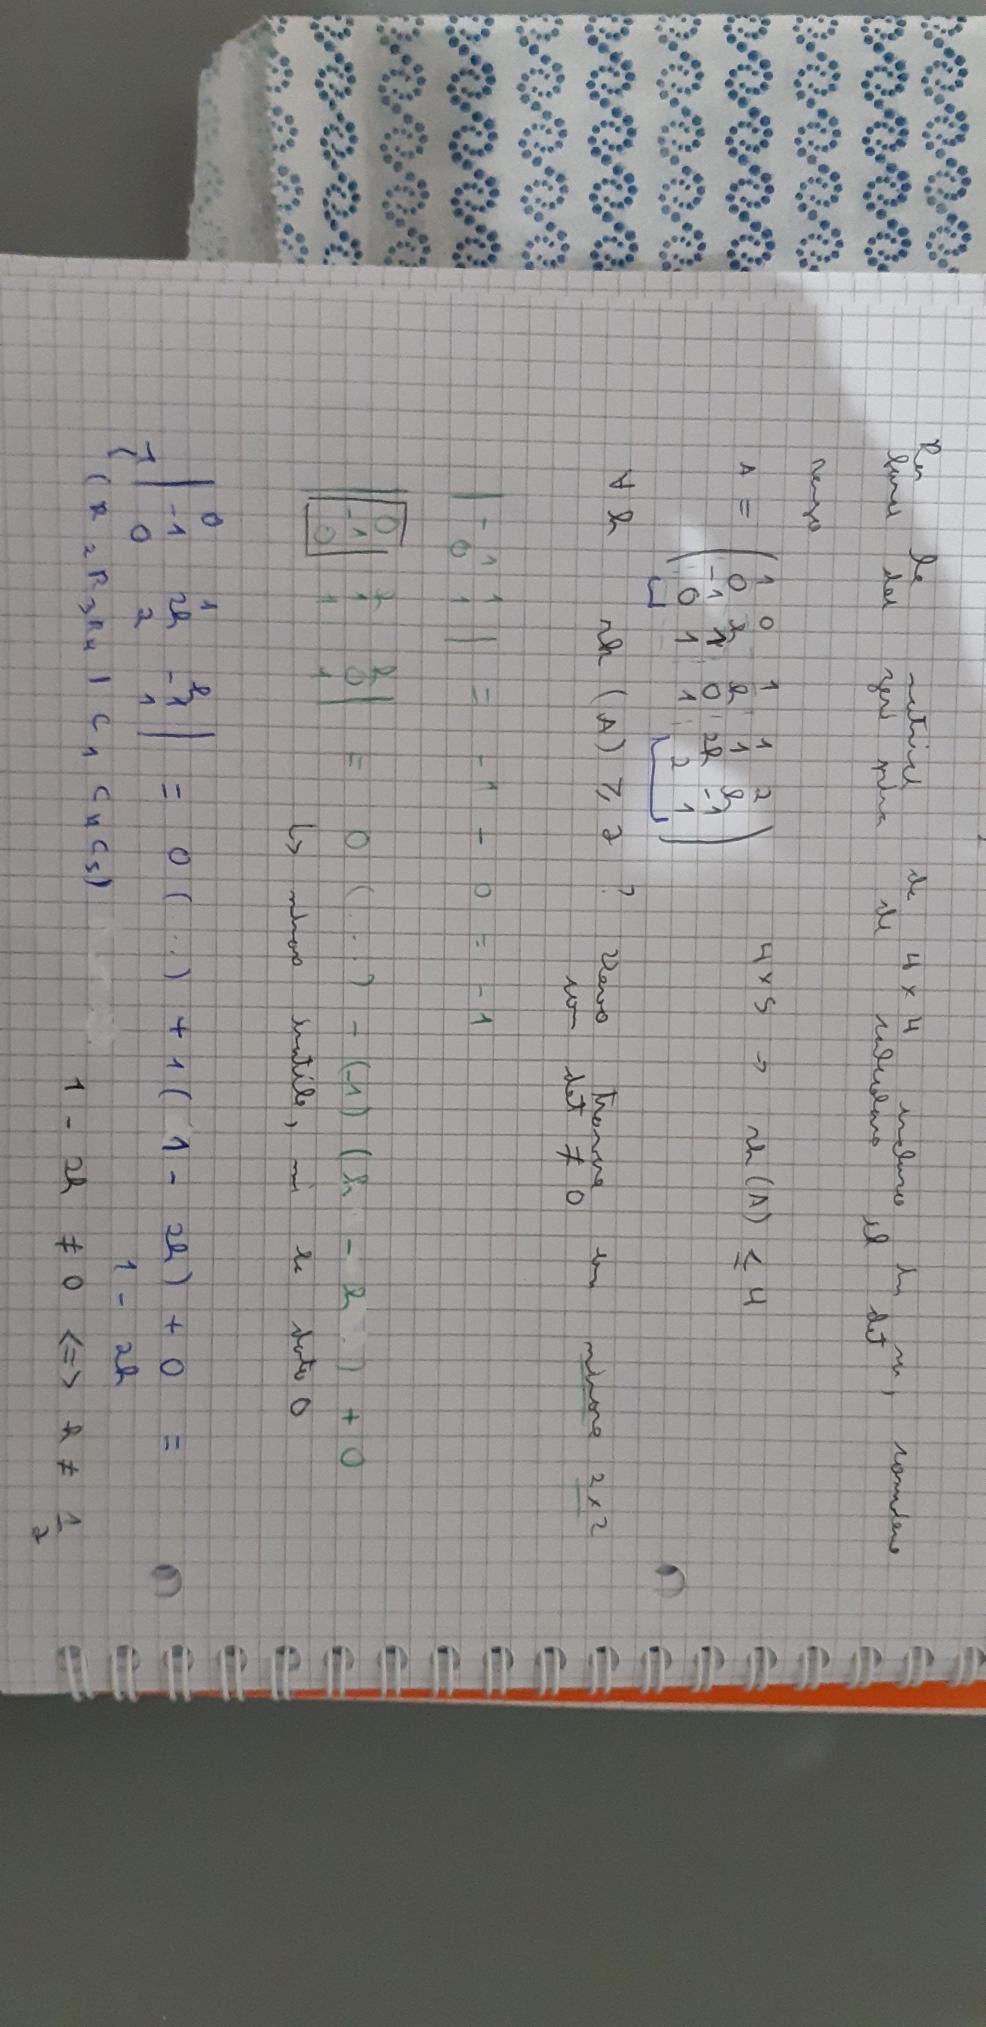 Per le matrici da 4 x 4 incluso in su, conviene
fare degli zeri prima di calcolare il det
rango
A = ( 1 0 1 1 2
0 h h 1 h
-1 1 0 2h -1
0 1 1 2 1 ) 4 x 5 → rk (A) ≤ 4
∀ h rk (A) ≥ 2 ? Devo trovare un minore 2 x 2
con det ≠ 0
| -1 1 | = -1 - 0 = -1
| 0 1 |
| 0 h h |
| -1 1 0 | = 0 (...) - (-1) (h - h) + 0
| 0 1 1 |
↳ minore inutile, mi è dato 0
| 0 1 h |
| -1 2h -1 | = 0 (...) + 1 ( 1 - 2h ) + 0 =
| 0 2 1 | 1 - 2h
( R2 R3 R4 | C1 C4 C5 )
1 - 2h ≠ 0 <=> h ≠ 1/2